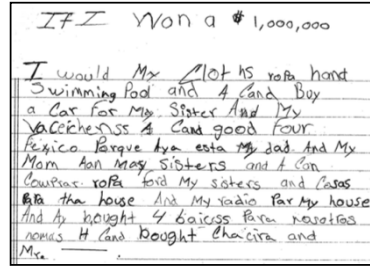 If I Won a $1,000,000
I would My Cloths ropa hand
Swimming Pool and A Cand Boy
a Car For My Sister And My
Vaceichenss A Cand good Four
Pexico Porque Aya esta My dad And My
Mom Aan May Sisters and A Con
Comprar ropa ford My sisters and Casas
Para tha house And My radio Par My house
And Ay bought 4 baicss Para nosotros
nomas H Cand bought Chacira and
Mre